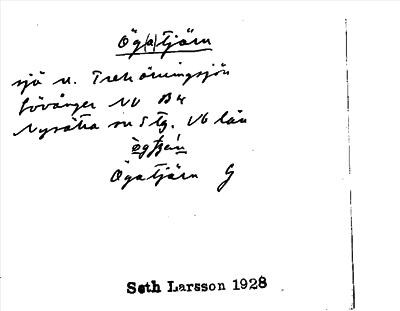 Ög(a)tjärn
sjö n. Trehörningsjön
Lövånger NV B4
Nysätra sn Stg. Vb län
ögtjän
Ögatjärn G
Seth Larsson 1928